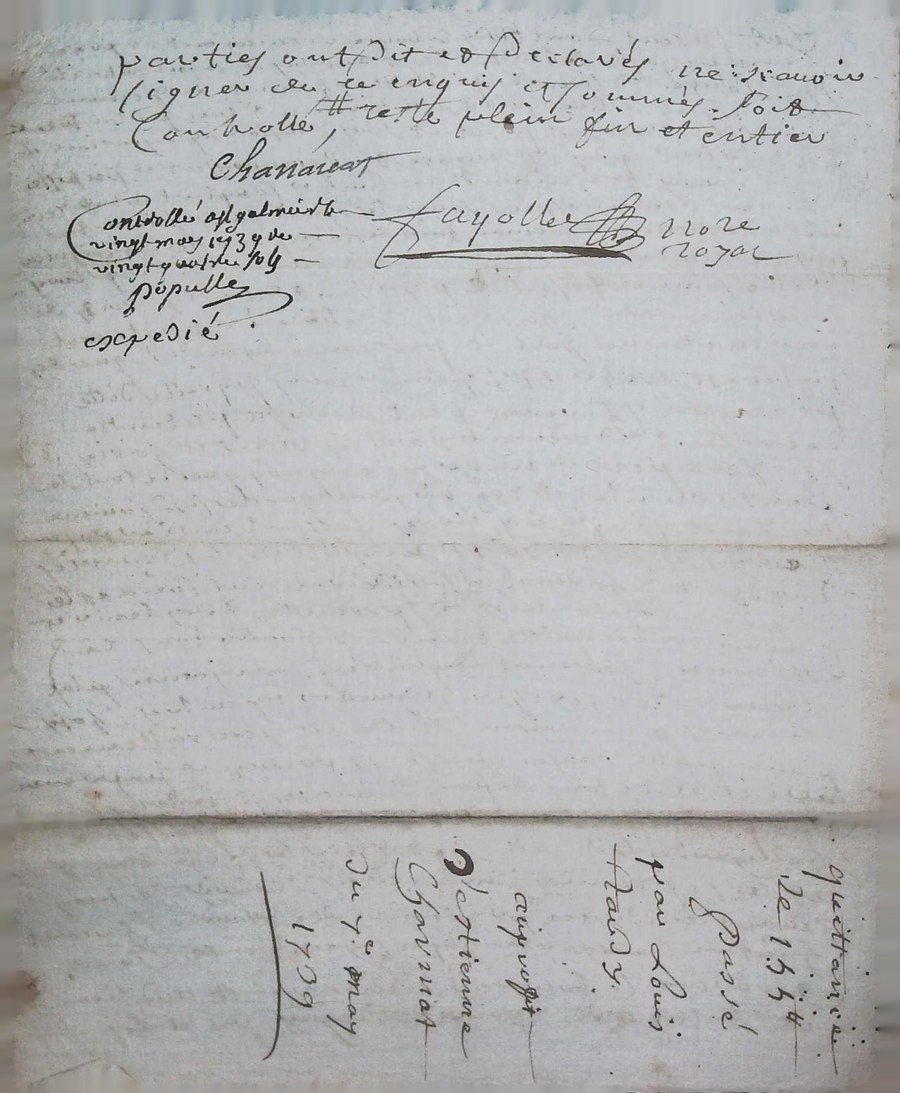 parties ont dit et declarés ne scavoir
signer de ce enquis et sommés. soit
Controllé, reste plein fin et entier
Chanavat
Controllé a St galmier le
vingt may 1739 re
vingt quatre sols
populle
expedié
fayolle nore
royal
quittance
de 155 #
passé
par Louis
au profit
d'estienne
Charmat
du 7e may
1739